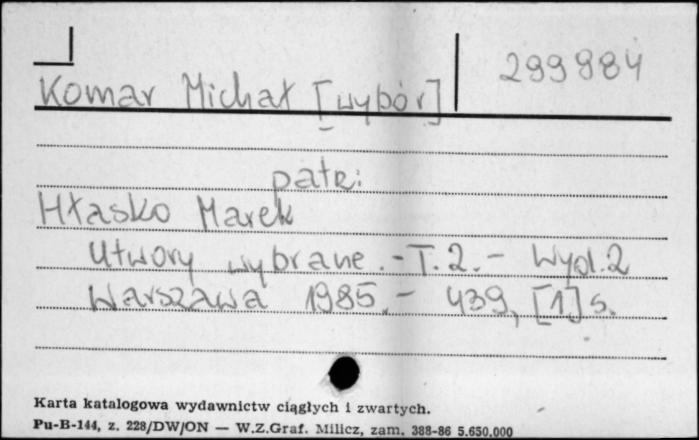 299984
Komar Michał [wybór]
patrz:
Hłasko Marek
Utwory wybrane. - T.2. - Wyd.2
Warszawa 1985. - 439, [1] s.
Karta katalogowa wydawnictw ciągłych i zwartych.
Pu-B-144, z. 228/DW/ON — W.Z.Graf. Milicz, zam. 388-86 5.650.000